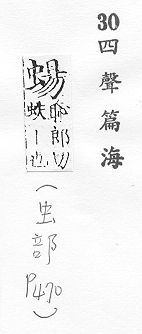 30四聲篇海
蝪恥郎切
蛈丨也
(虫部P470)